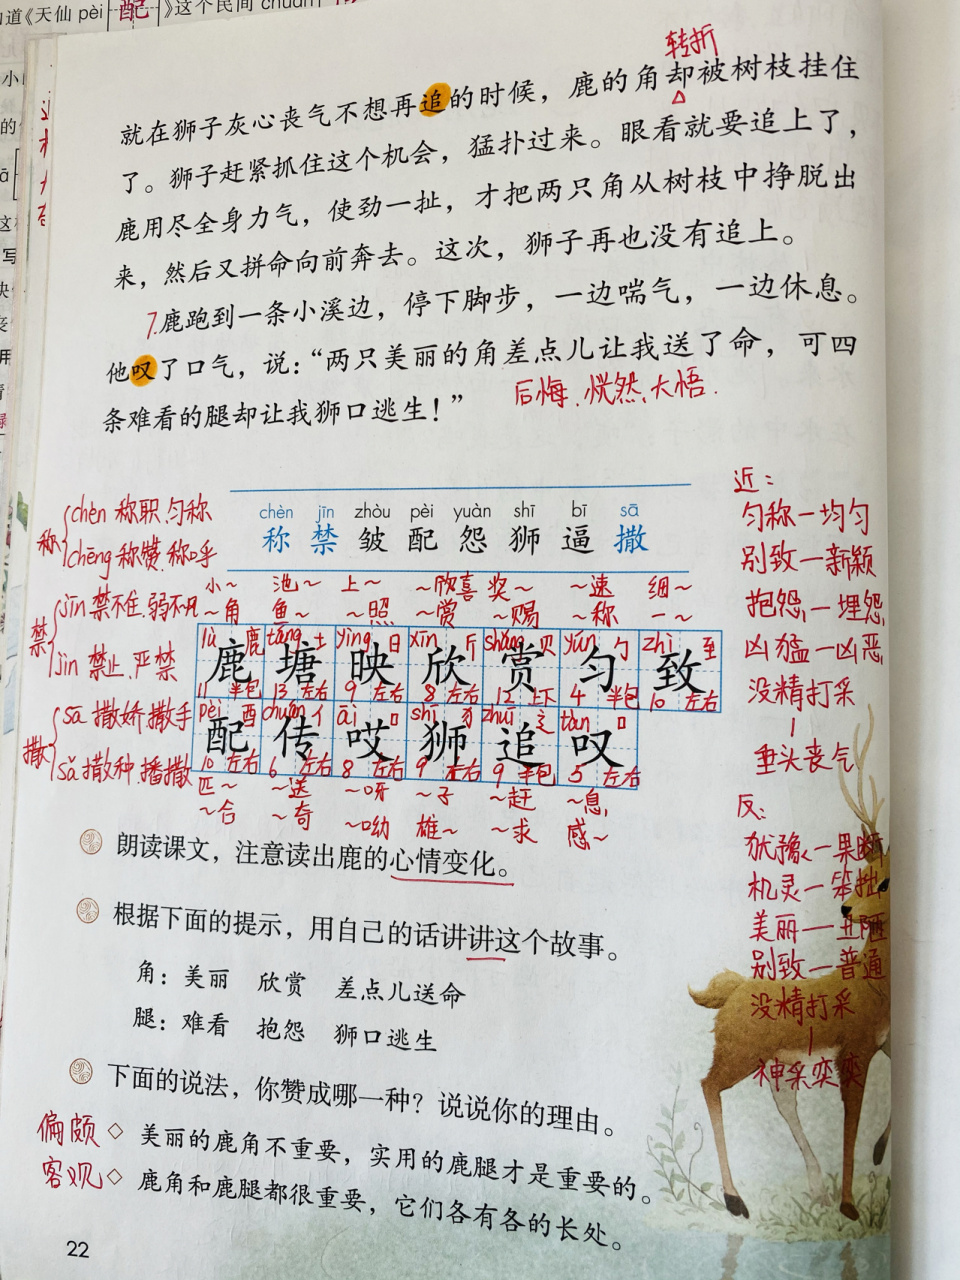 道《天仙 pèi 配 》这个民间 chuán
转折
就在狮子灰心丧气不想再追的时候，鹿的角却被树枝挂住
了。狮子赶紧抓住这个机会，猛扑过来。眼看就要追上了，
鹿用尽全身力气，使劲一扯，才把两只角从树枝中挣脱出
来，然后又拼命向前奔去。这次，狮子再也没有追上。
7.鹿跑到一条小溪边，停下脚步，一边喘气，一边休息。
他叹了口气，说：“两只美丽的角差点儿让我送了命，可四
条难看的腿却让我狮口逃生！”
后悔、恍然大悟.
chèn jīn zhòu pèi yuàn shī bī sā
称 禁 皱 配 怨 狮 逼 撒
称 chèn 称职、匀称
chēng 称赞、称呼
禁 jīn 禁不住、弱不禁风
jìn 禁止、严禁
撒 sā 撒娇、撒手
sǎ 撒种、播撒
小～ 池～ 上～ ～欣喜 奖～ ～速 细～
～角 鱼～ ～照 ～赏 ～赐 ～称 一～
lù 鹿 táng 土 yìng 日 xīn 斤 shǎng 贝 yún 勹 zhì 至
鹿 塘 映 欣 赏 匀 致
11 半包 13 左右 9 左右 8 左右 12 上下 4 半包 10 左右
pèi 酉 chuán 亻 āi 口 shī 犭 zhuī 辶 tàn 口
配 传 哎 狮 追 叹
10 左右 6 左右 8 左右 9 左右 9 半包 5 左右
匹～ ～送 ～呀 ～子 ～赶 ～息
～合 ～奇 ～呦 雄～ ～求 感～
近：
匀称—均匀
别致—新颖
抱怨—埋怨
凶猛—凶恶
没精打采
|
垂头丧气
反：
犹豫—果断
机灵—笨拙
美丽—丑陋
别致—普通
没精打采
|
神采奕奕
朗读课文，注意读出鹿的心情变化。
根据下面的提示，用自己的话讲讲这个故事。
角：美丽 欣赏 差点儿送命
腿：难看 抱怨 狮口逃生
下面的说法，你赞成哪一种？说说你的理由。
偏颇 ◇ 美丽的鹿角不重要，实用的鹿腿才是重要的。
客观 ◇ 鹿角和鹿腿都很重要，它们各有各的长处。
22